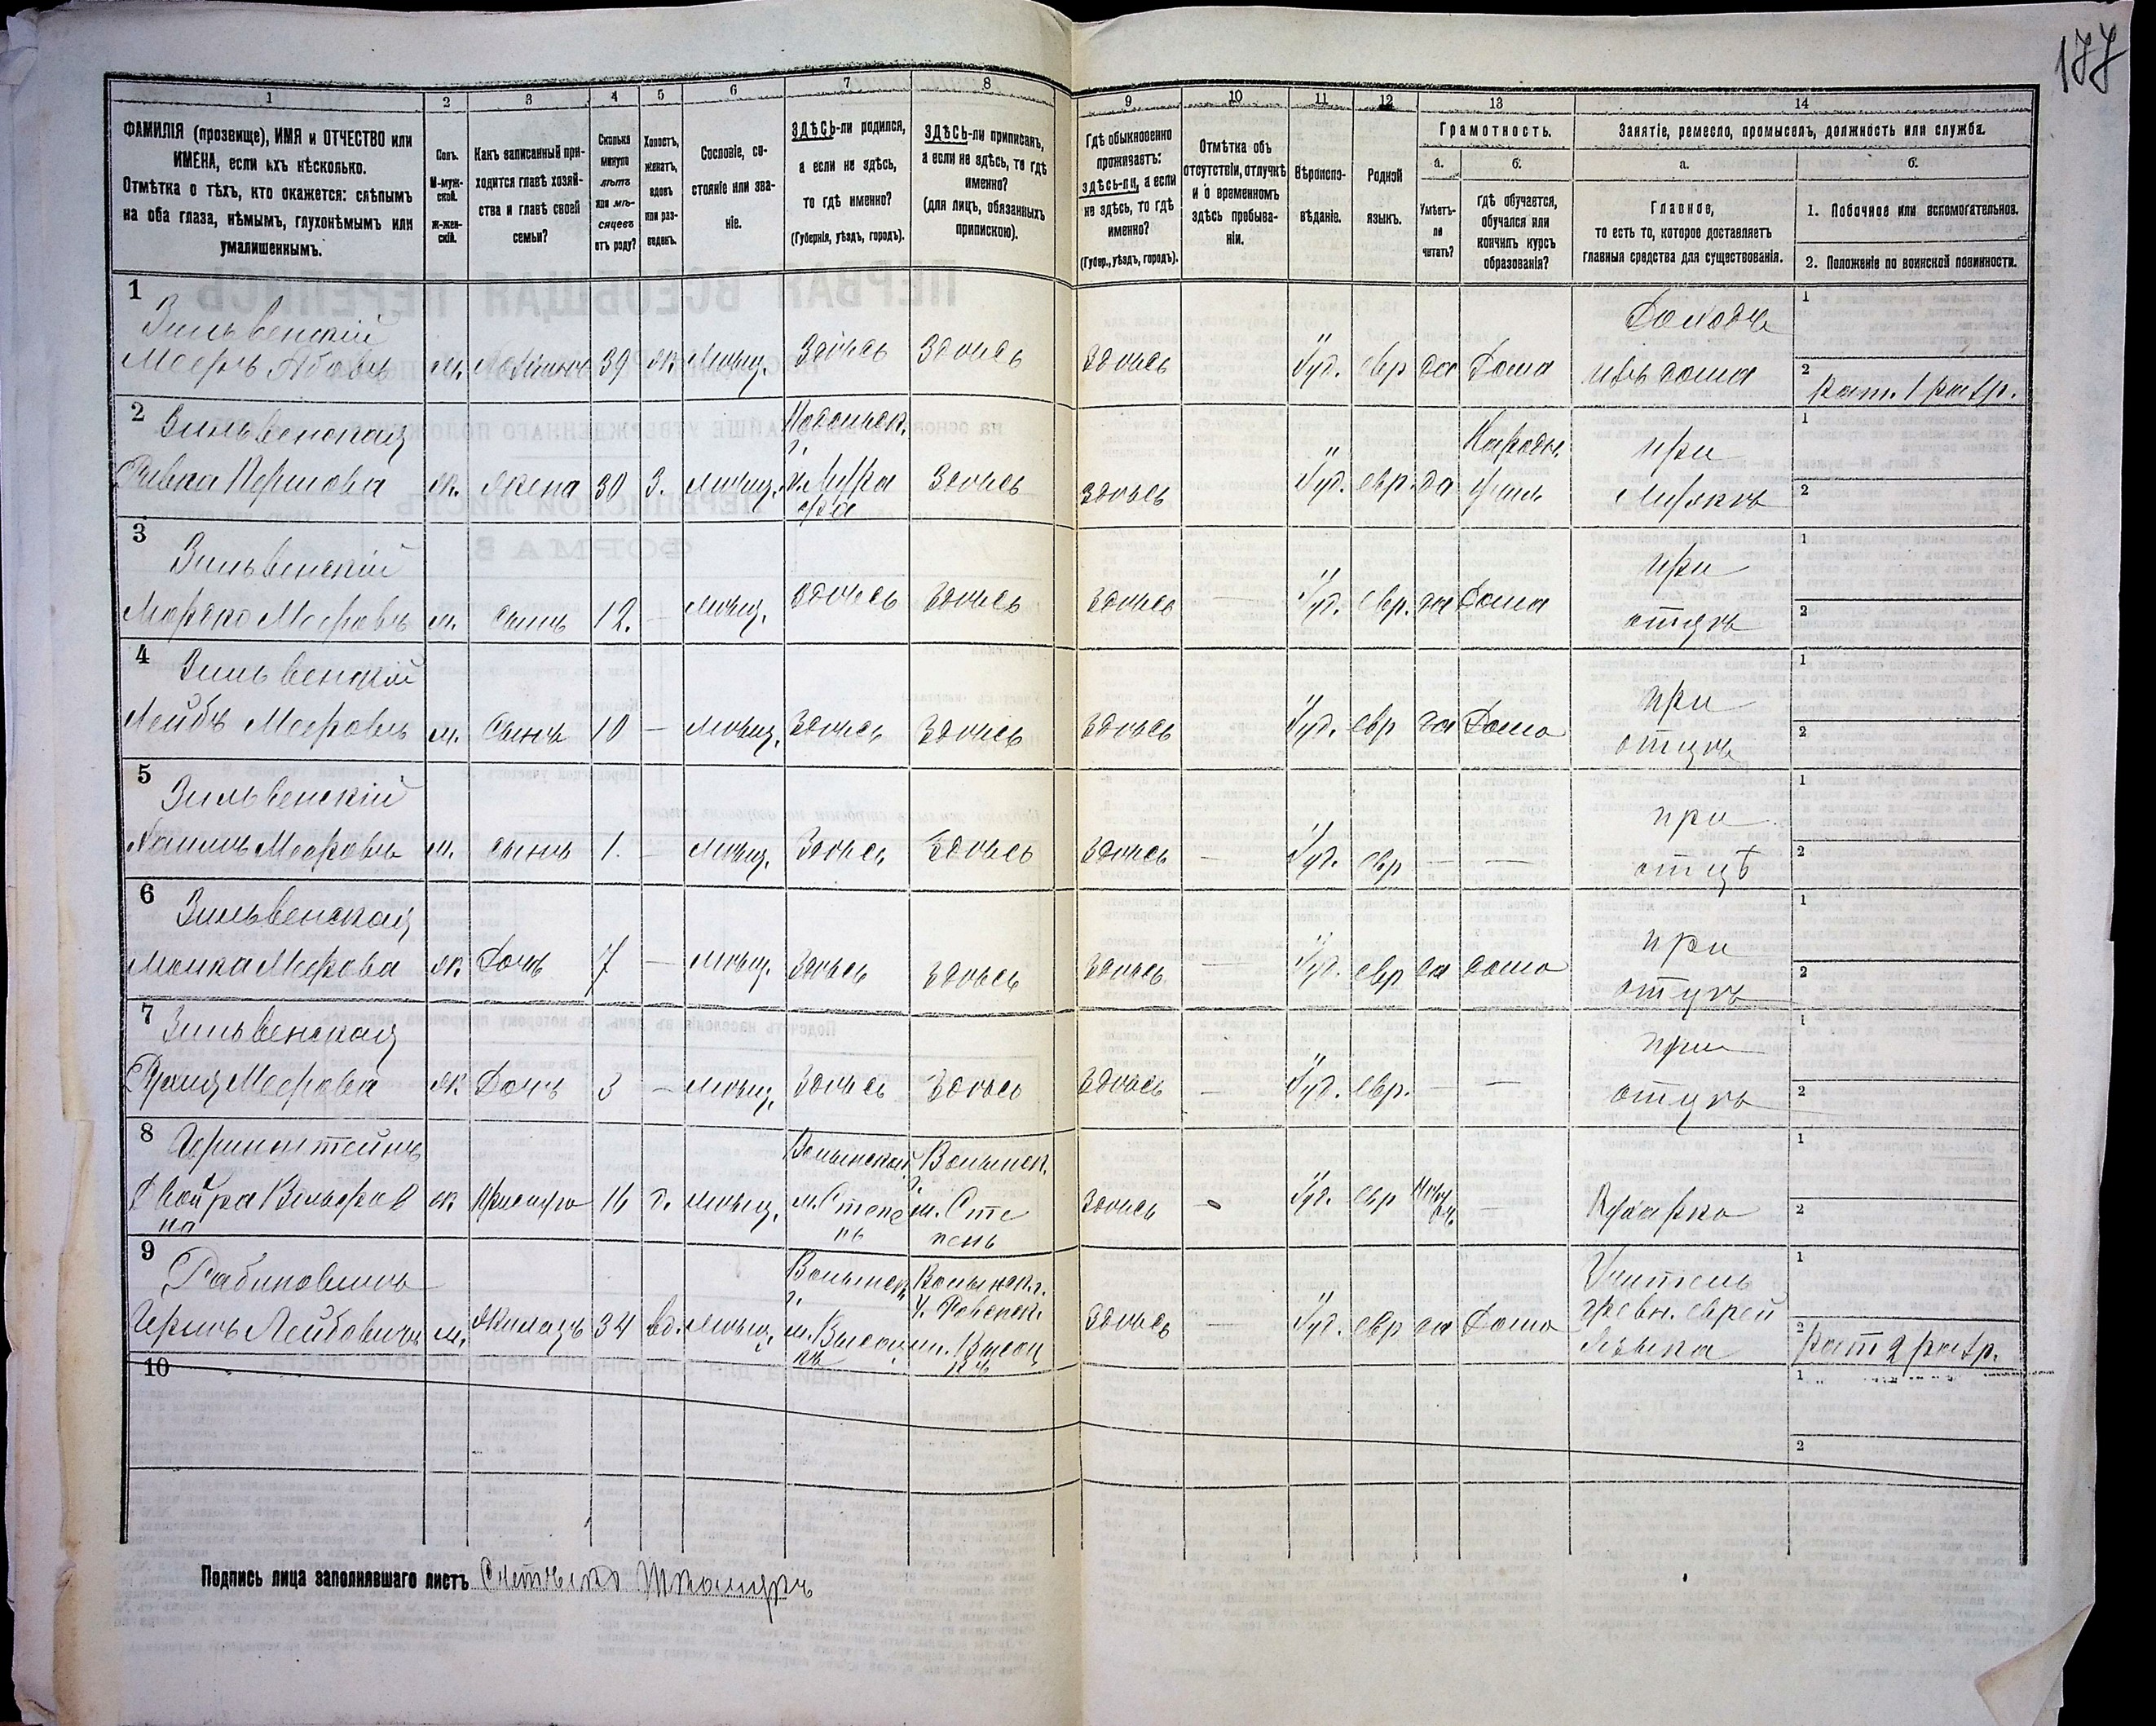 177
1 2 3 4 5 6 7 8 9 10 11 12 13 14
ФАМИЛІЯ (прозвище), ИМЯ и ОТЧЕСТВО или
ИМЕНА, если ихъ нѣсколько.
Отмѣтка о тѣхъ, кто окажется: слѣпымъ
на оба глаза, нѣмымъ, глухонѣмымъ или
умалишеннымъ.
Полъ.
М-муж-
ской.
Ж-жен-
скій.
Какъ записанный при-
ходится главѣ хозяй-
ства и главѣ своей
семьи?
Сколько
минуло
лѣтъ
или мѣ-
сяцевъ
отъ роду?
Холостъ,
женатъ,
вдовъ
или раз-
веденъ.
Сословіе, со-
стояніе или зва-
ніе.
ЗДѢСЬ-ли родился,
а если не здѣсь,
то гдѣ именно?
(Губернія, уѣздъ, городъ).
ЗДѢСЬ-ли приписанъ,
а если не здѣсь, то гдѣ
именно?
(для лицъ, обязанныхъ
припискою).
Гдѣ обыкновенно
проживаетъ:
здѣсь-ли, а если
не здѣсь, то гдѣ
именно?
(Губер., уѣздъ, городъ).
Отмѣтка объ
отсутствіи, отлучкѣ
и о временномъ
здѣсь пребыва-
ніи.
Вѣроиспо-
вѣданіе.
Родной
языкъ.
Грамотность.
а.
Умѣетъ-
ли
читать?
б.
гдѣ обучается,
обучался или
кончилъ курсъ
образованія?
Занятіе, ремесло, промыселъ, должность или служба.
а.
Главное,
то есть то, которое доставляетъ
главныя средства для существованія.
б.
1. Побочное или вспомогательное.
2. Положеніе по воинской повинности.
1
Зильвенскій
Мееръ м. 39 ж. мѣщ. Здѣсь Здѣсь Здѣсь Іуд. евр да Дома
изъ дома
1
2 рат. 1 разр.
2 Зильвенская
Ривка ж. жена 30 З. мѣщ. Здѣсь Здѣсь Іуд. евр. да
при
мужѣ
1
2
3
Зильвенскій
Мордко Мееровъ м. сынъ 12. — мѣщ. Здѣсь Здѣсь Здѣсь — Іуд. евр. да Дома
при
отцѣ
1
2
4 Зильвенскій
Лейбъ Мееровъ м. Сынъ 10 — мѣщ. Здѣсь Здѣсь Здѣсь — Іуд. евр да Дома
при
отцѣ
1
2
5
Зильвенскій
Мееровъ м. сынъ 1. — мѣщ. Здѣсь Здѣсь Здѣсь — Іуд. евр — —
при
отцѣ
1
2
6 Зильвенская
Меерова ж Дочь 7 — мѣщ. Здѣсь Здѣсь Здѣсь — Іуд. евр да дома
при
отцѣ
1
2
7 Зильвенская
Меерова ж Дочь 3 — мѣщ. Здѣсь Здѣсь Здѣсь — Іуд. евр. — —
при
отцѣ
1
2
8
ж. Прислуга 16 д. мѣщ. Волынской м. Степень Волынск. г. м. Степень Здѣсь Іуд. евр —
Кухарка
1
2
9 Рабиновичъ
Гершъ Лейбовичъ м. Жилецъ 34 вд. мѣщ. Волынск. г. м. Высоцкъ Волынск. г. у. Ровенск. м. Высоцкъ Здѣсь — Іуд. евр да Дома
Учитель
древн. еврей
языка
1
2 рат 2 разр.
10
1
2
Подпись лица заполнявшаго листъ